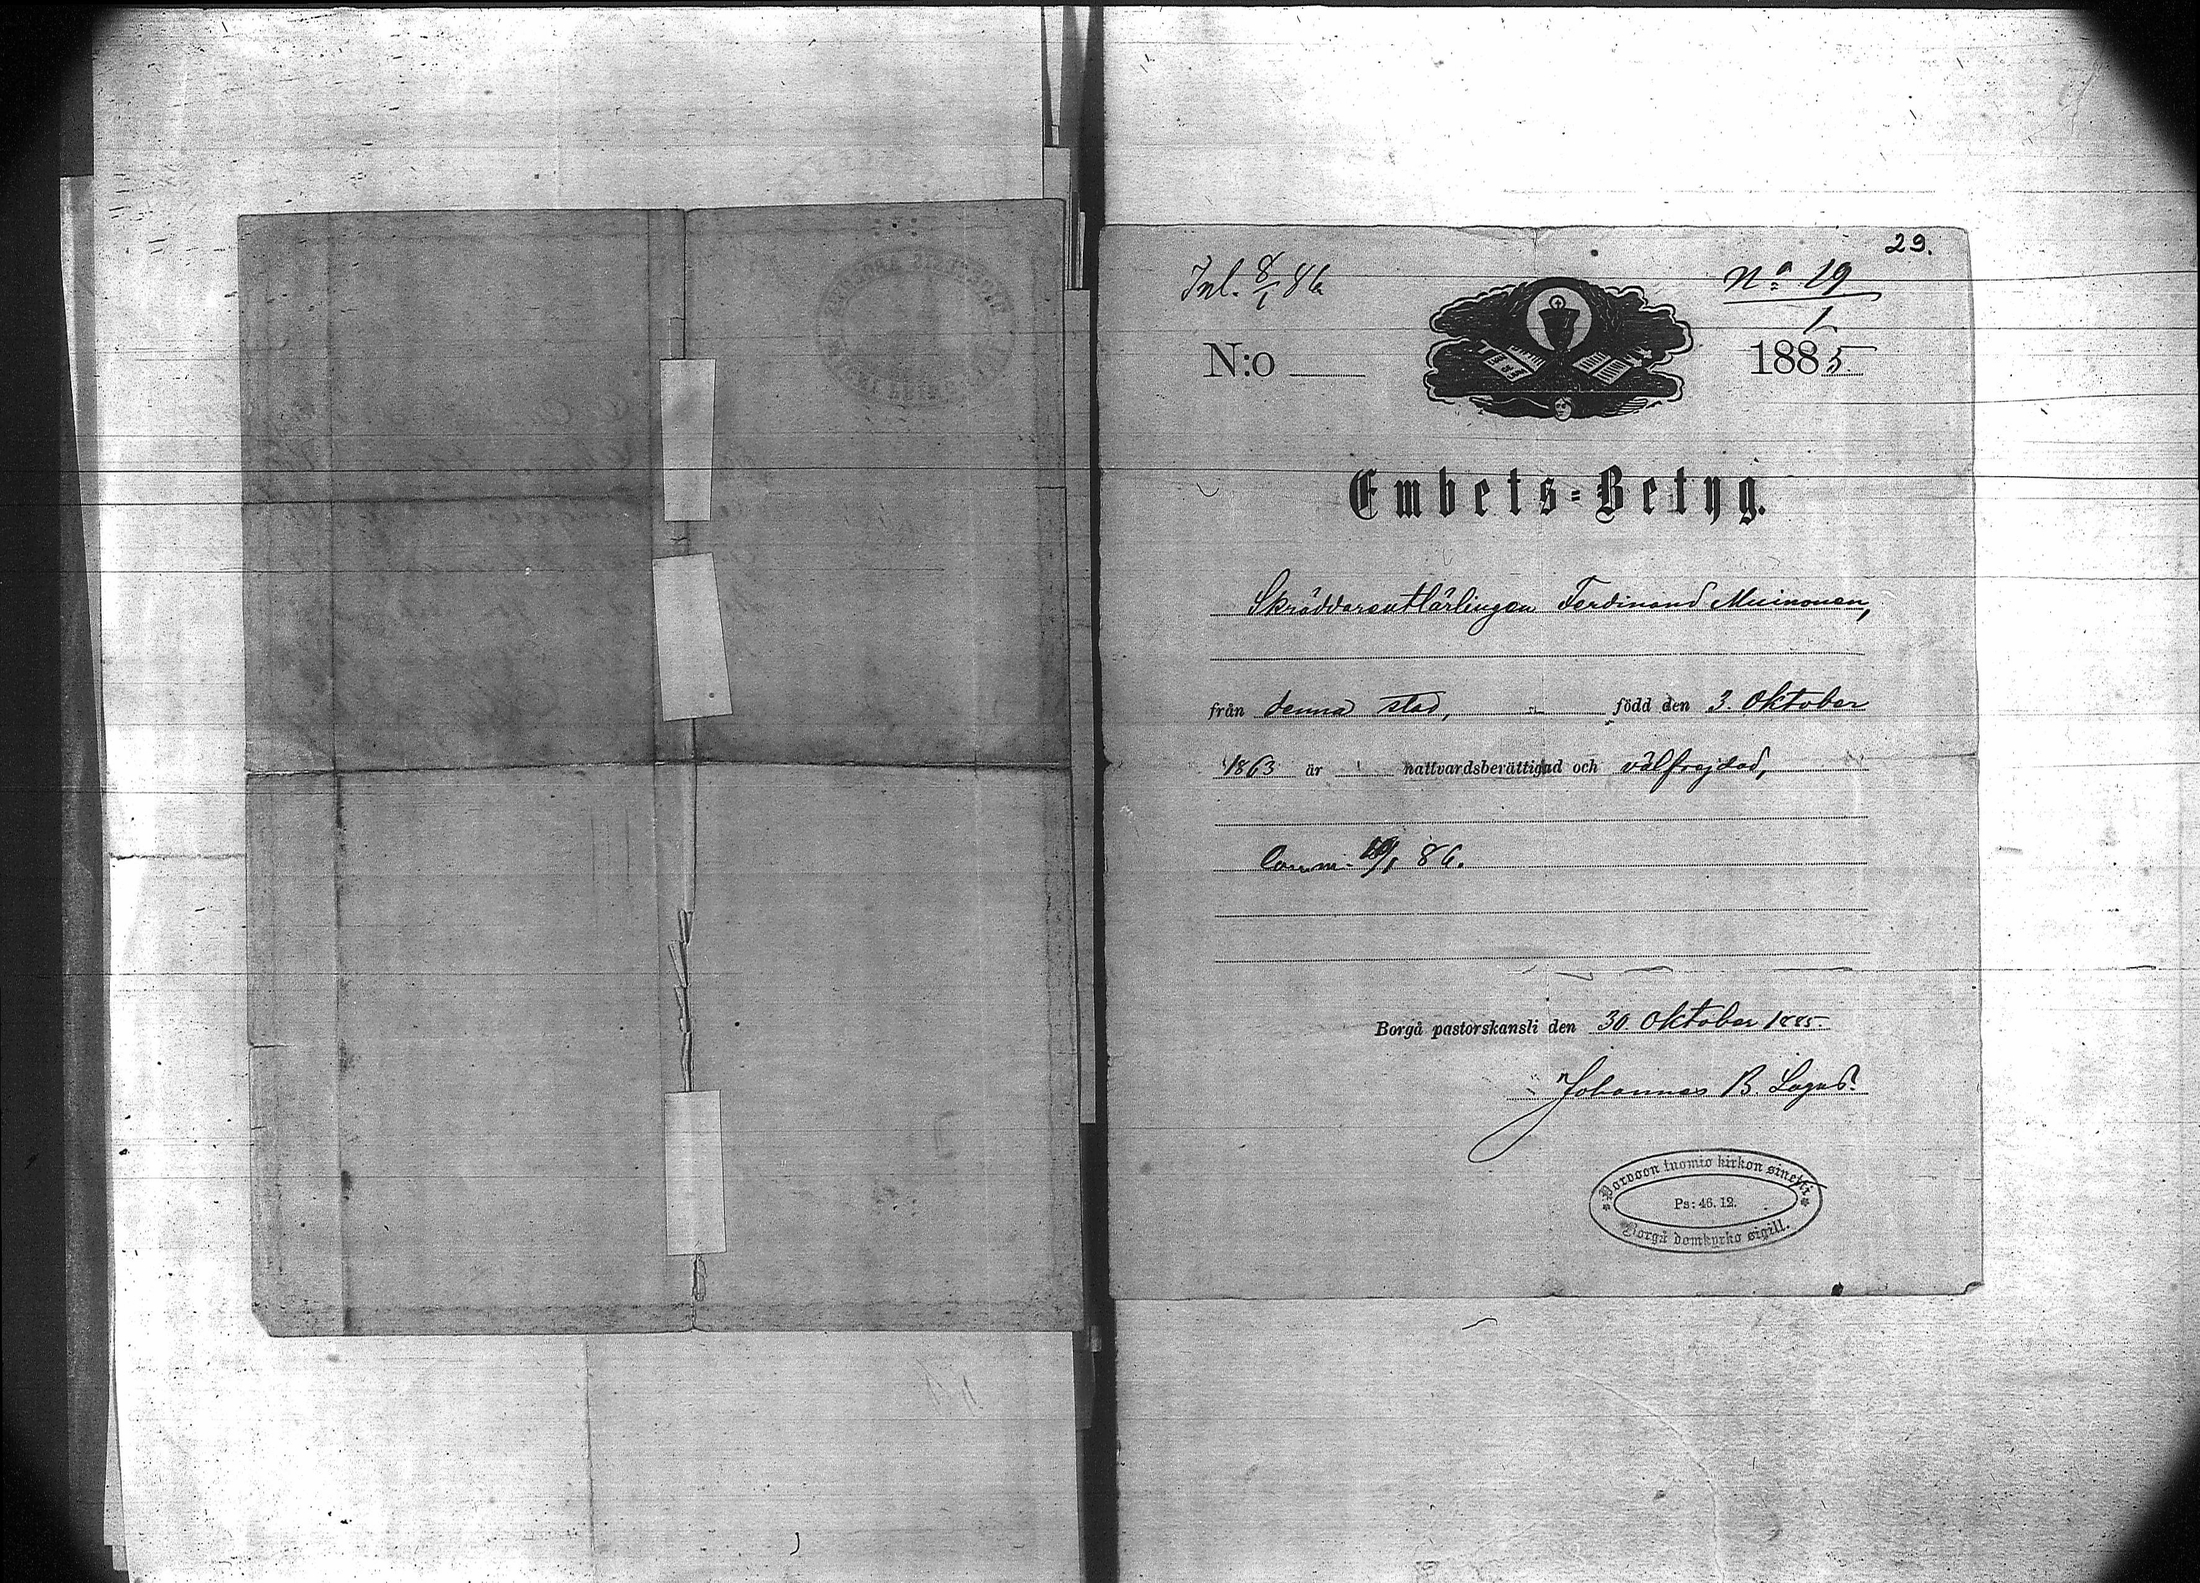 29.
Inl. 8/1 86
No 19
1
N:o
1885
Embets-Betyg.
Skräddareutlärlingen Ferdinand Muinonen,
från denna stad, född den 3. Oktober
1863 är nattvardsberättigad och välfrejdad,
Comm. 86.
Borgå pastorskansli den 30 Oktober 1885.
Johannes B. Lagus.
Porvoon tuomio kirkon sinetti
Ps: 46. 12.
Borgå domkyrko sigill.